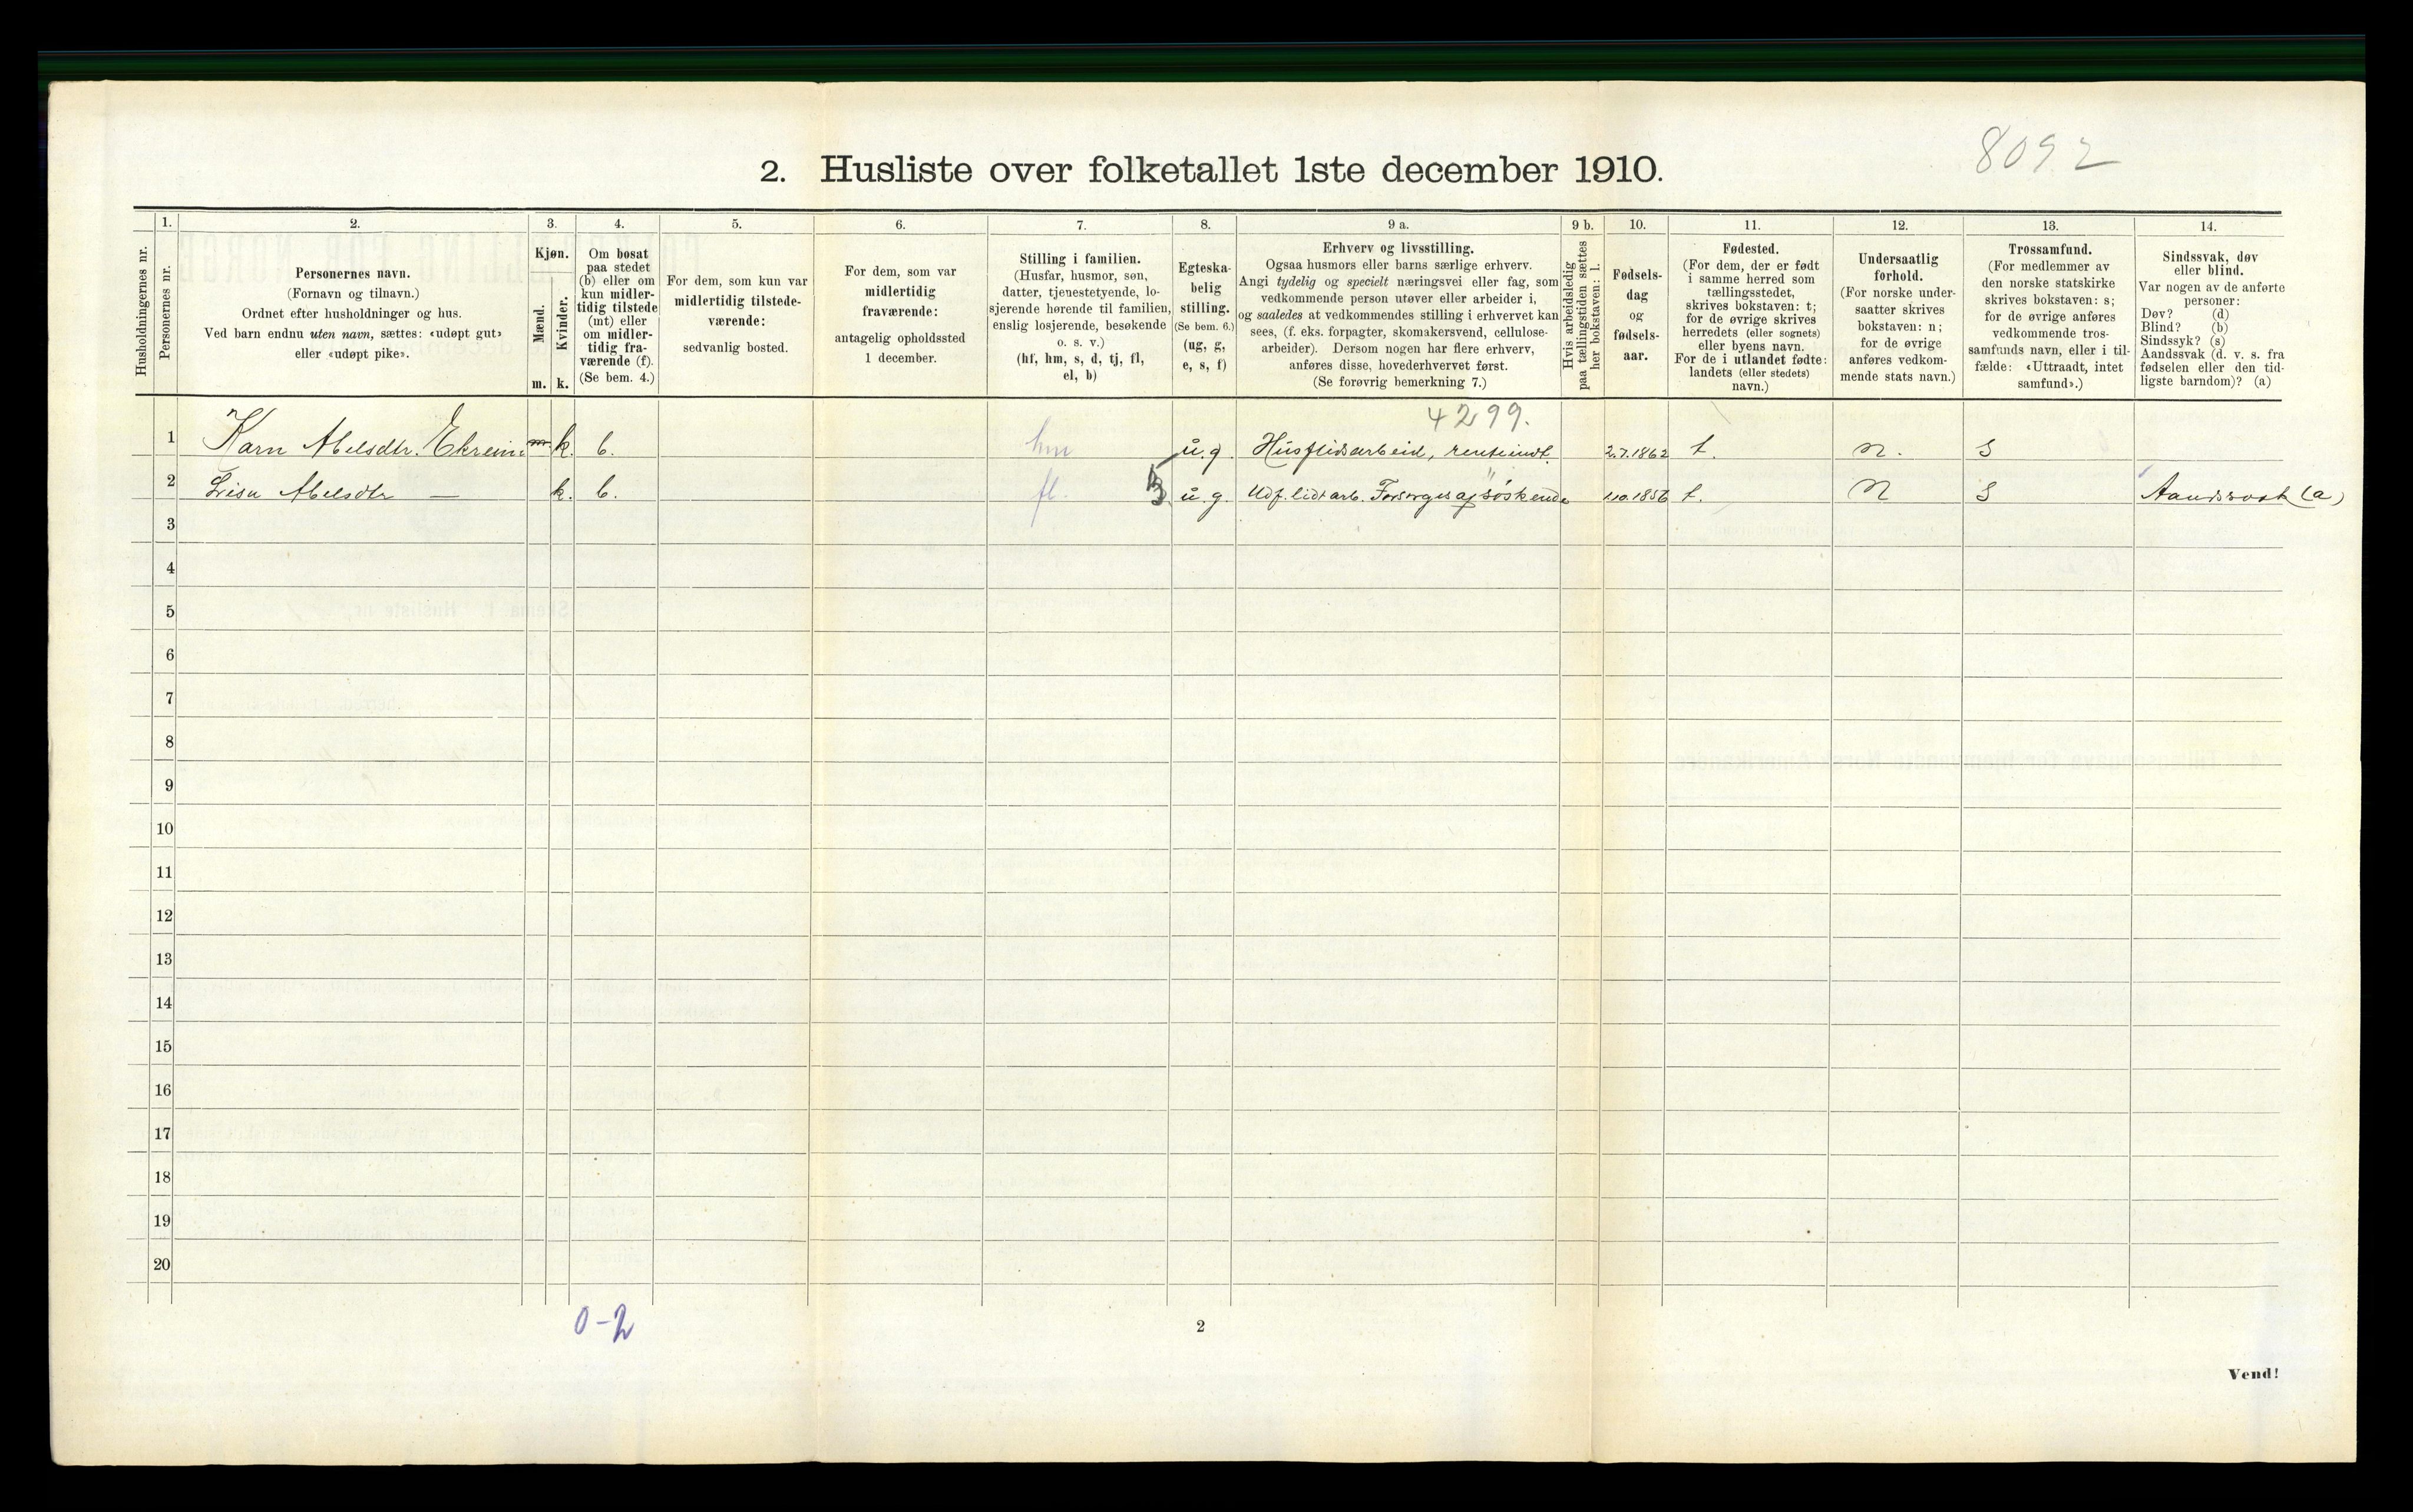 8092
2. Husliste over folketallet 1ste december 1910.
Husholdningernes nr.
1.
Personernes nr.
2.
Personernes navn.
(Fornavn og tilnavn.)
Ordnet efter husholdninger og hus.
Ved barn endnu uten navn, sættes: «udøpt gut»
eller «udøpt pike».
3.
Kjøn.
Mænd.
Kvinder.
m. k.
4.
Om bosat
paa stedet
(b) eller om
kun midler-
tidig tilstede
(mt) eller
om midler-
tidig fra-
værende (f).
(Se bem. 4.)
5.
For dem, som kun var
midlertidig tilstede-
værende:
sedvanlig bosted.
6.
For dem, som var
midlertidig
fraværende:
antagelig opholdssted
1 december.
7.
Stilling i familien.
(Husfar, husmor, søn,
datter, tjenestetyende, lo-
sjerende hørende til familien,
enslig losjerende, besøkende
o. s. v.)
(hf, hm, s, d, tj, fl,
el, b)
8.
Egteska-
belig
stilling.
(Se bem. 6.)
(ug, g,
e, s, f)
9 a.
Erhverv og livsstilling.
Ogsaa husmors eller barns særlige erhverv.
Angi tydelig og specielt næringsvei eller fag, som
vedkommende person utøver eller arbeider i,
og saaledes at vedkommendes stilling i erhvervet kan
sees, (f. eks. forpagter, skomakersvend, cellulose-
arbeider). Dersom nogen har flere erhverv,
anføres disse, hovederhvervet først.
(Se forøvrig bemerkning 7.)
9 b.
Hvis arbeidsledig
paa tællingstiden sættes
her bokstaven: l.
10.
Fødsels-
dag
og
fødsels-
aar.
11.
Fødested.
(For dem, der er født
i samme herred som
tællingsstedet,
skrives bokstaven: t;
for de øvrige skrives
herredets (eller sognets)
eller byens navn.
For de i utlandet fødte:
landets (eller stedets)
navn.)
12.
Undersaatlig
forhold.
(For norske under-
saatter skrives
bokstaven: n;
for de øvrige
anføres vedkom-
mende stats navn.)
13.
Trossamfund.
(For medlemmer av
den norske statskirke
skrives bokstaven: s;
for de øvrige anføres
vedkommende tros-
samfunds navn, eller i til-
fælde: «Uttraadt, intet
samfund».)
14.
Sindssvak, døv
eller blind.
Var nogen av de anførte
personer:
Døv? (d)
Blind? (b)
Sindssyk? (s)
Aandssvak (d. v. s. fra
fødselen eller den tid-
ligste barndom)? (a)
4299.
1 Karn Abelsdtr. Ekreim m k. b. hm u.g. Husflidsarbeid, renteindt. 2.7.1862 t. n. S
2 Lrisa Abelsdtr — k. b. fl. u.g. Udf. lidt arb. Forsørges af søskende 1.10.1856 t. N S Aandssvak (a)
3
4
5
6
7
8
9
10
11
12
13
14
15
16
17
18
19
20
0-2
2
Vend!